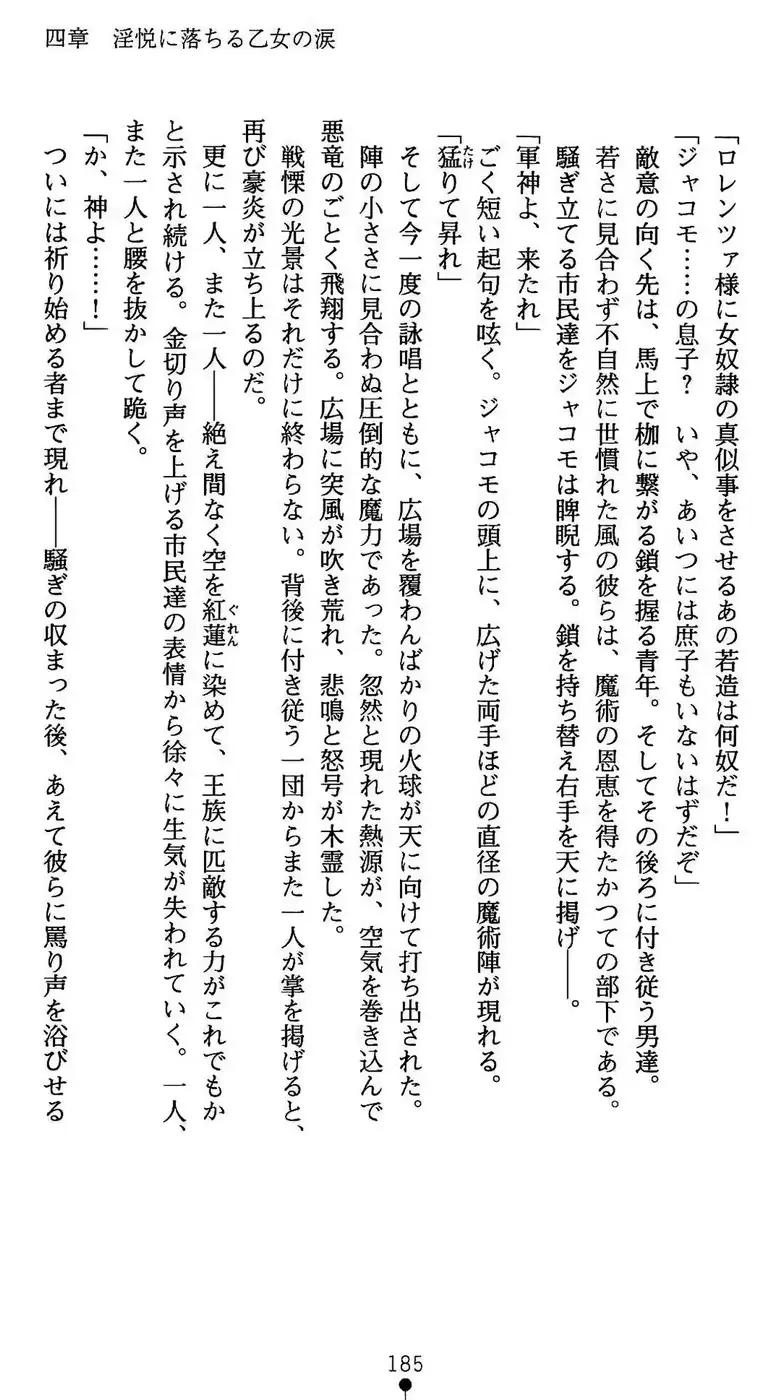 四章　淫悦に落ちる乙女の涙
「ロレンツァ様に女奴隷の真似事をさせるあの若造は何奴だ！」
「ジャコモ……の息子？　いや、あいつには庶子もいないはずだぞ」
敵意の向く先は、馬上で枷に繋がる鎖を握る青年。そしてその後ろに付き従う男達。
若さに見合わず不自然に世慣れた風の彼らは、魔術の恩恵を得たかつての部下である。
騒ぎ立てる市民達をジャコモは睥睨する。鎖を持ち替え右手を天に掲げ――。
「軍神よ、来たれ」
ごく短い起句を呟く。ジャコモの頭上に、広げた両手ほどの直径の魔術陣が現れる。
「猛りて昇れ」
そして今一度の詠唱とともに、広場を覆わんばかりの火球が天に向けて打ち出された。
陣の小ささに見合わぬ圧倒的な魔力であった。忽然と現れた熱源が、空気を巻き込んで
悪竜のごとく飛翔する。広場に突風が吹き荒れ、悲鳴と怒号が木霊した。
戦慄の光景はそれだけに終わらない。背後に付き従う一団からまた一人が掌を掲げると、
再び豪炎が立ち上るのだ。
更に一人、また一人――絶え間なく空を紅蓮に染めて、王族に匹敵する力がこれでもか
と示され続ける。金切り声を上げる市民達の表情から徐々に生気が失われていく。一人、
また一人と腰を抜かして跪く。
「か、神よ……！」
ついには祈り始める者まで現れ――騒ぎの収まった後、あえて彼らに罵り声を浴びせる
185